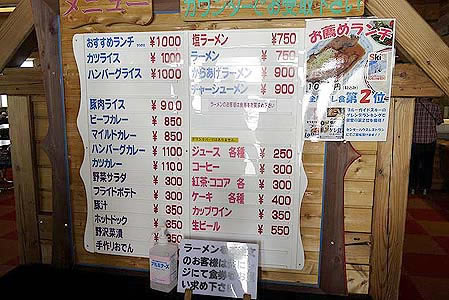 メニュー
カウンターにお受取り下さい
おすすめランチ ¥1000
カツライス ¥1000
ハンバーグライス ¥1000
豚肉ライス ¥900
ビーフカレー ¥850
マイルドカレー ¥850
ハンバーグカレー ¥1100
カツカレー ¥1100
野菜サラダ ¥300
フライドポテト ¥350
豚汁 ¥350
ホットドック ¥350
野沢菜漬 ¥350
手作りおでん
塩ラーメン ¥750
ラーメン ¥750
からあげラーメン ¥900
チャーシューメン ¥900
ジュース 各種 ¥250
コーヒー ¥300
紅茶・ココア 各 ¥300
ケーキ 各種 ¥400
カップワイン ¥350
生ビール ¥550
お薦めランチ
Ski
第2位
ラーメン
のお客様は
ジにて食券
い求め下さい